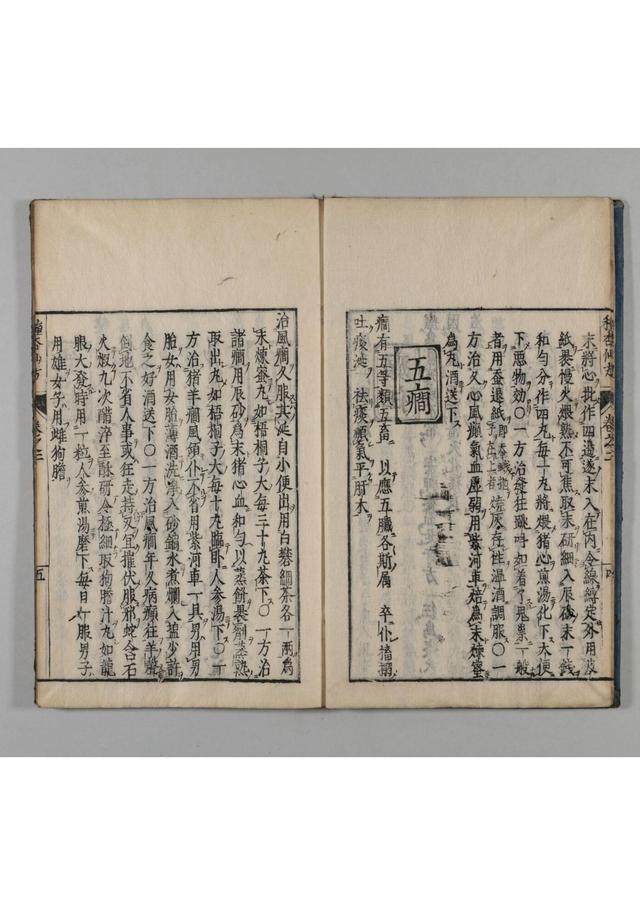 末將心批作四邊遂末入在內令線縛定外用濕
紙裹慢火煨熟不可焦取末研細入辰砂末一錢
和勻分作四丸每十丸將煨猪心煎湯化下大便
下惡物効〇一方治發狂踰時如着了鬼祟一般
者用蚕退紙即蚕蛾脫子在上者燒灰存性溫酒調服〇一
方治久心風癲氣血虛弱用紫河車焙為末煉蜜
為丸酒送下
五癎
癎有五等類五畜 以應五臟各斯屬 卒仆搐搦
吐痰涎 祛痰順氣平肝木
治風癎久服其涎自小便出用白礬細茶各一兩為
末煉蜜丸如梧桐子大每三十丸茶下〇一方治
諸癎用辰砂為末猪心血和勻以蒸餅裹劑蒸熟
取出丸如梧桐子大每十丸臨臥人參湯下〇一
方治猪羊癎風頃仆不省用紫河車一具男用男
胎女用女胎薄酒洗淨入砂鍋水煮爛入盬少許
食之好酒送下〇一方治風癎年久病癲狂羊癎
倒地不省人事或狂走持刃宜摧伏服邪蛇含石
火煆九次醋淬至酥研令極細取狗膽汁丸如龍
眼大發時用一粒人參煎湯磨下每日一服男子
用雄女子用雌狗膽
種杏仙方
卷之二
五